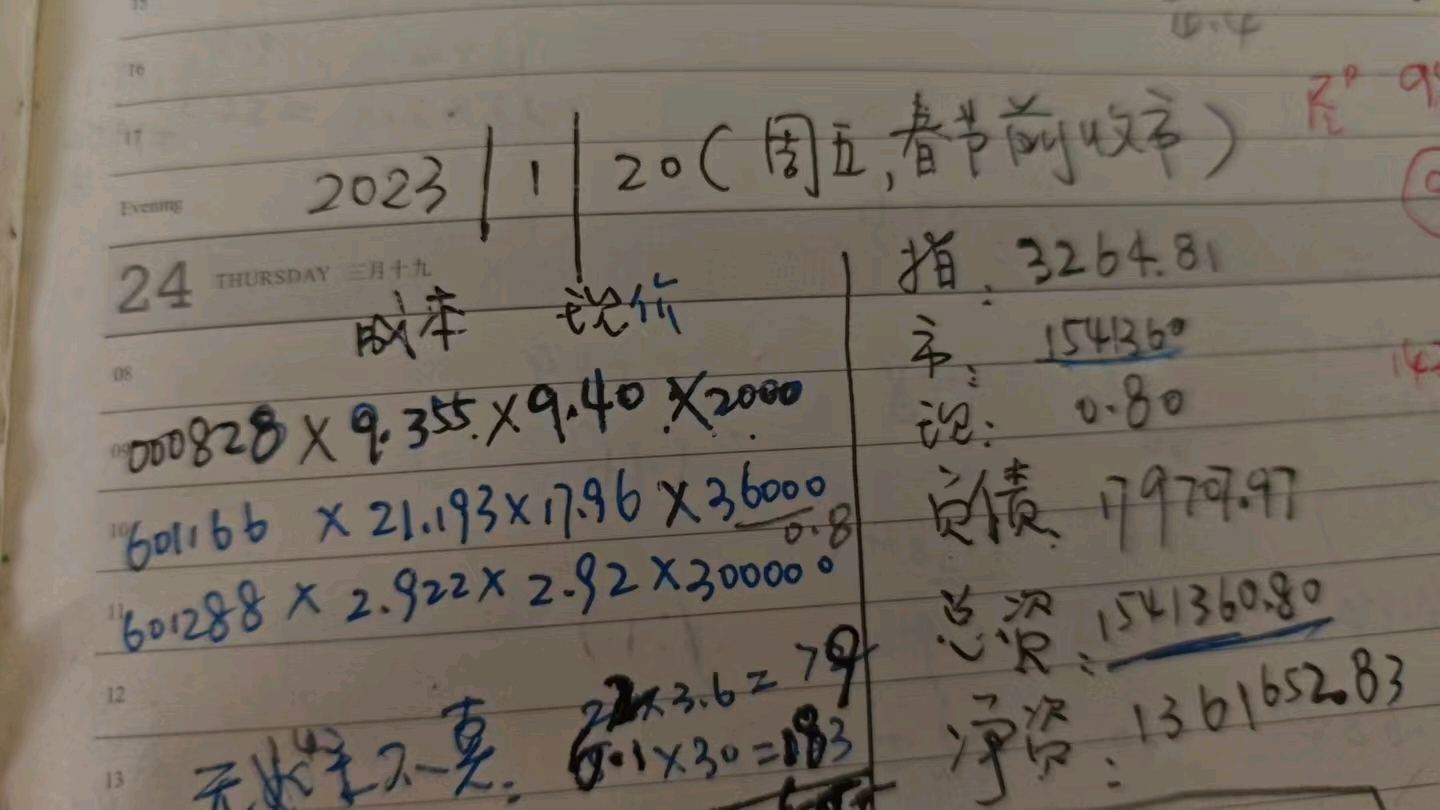 16
17
2023 | 1 | 20 (周五,春节前收市)
Evening
24 THURSDAY 三月十九
成本 现价
08
000828 × 9.355 × 9.40 × 2000
10
601166 × 21.193 × 17.96 × 36000
0.8
11
601288 × 2.922 × 2.92 × 300000
12
22 × 3.6 = 79
13
6.1 × 30 = 183
指: 3264.81
市: 1541360
现: 0.80
负债: 179707.97
总资: 1541360.80
净资: 1361652.83